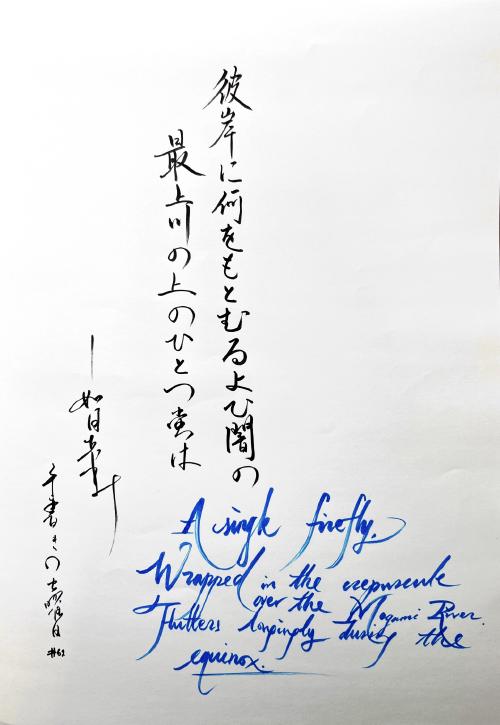 彼岸に何をもとむるよひ闇の
最上川の上のひとつ蛍は
手書きの土曜日
#61
A single firefly,
Wrapped in the crepuscule
over the Mogami River.
Flutters longingly during the
equinox.